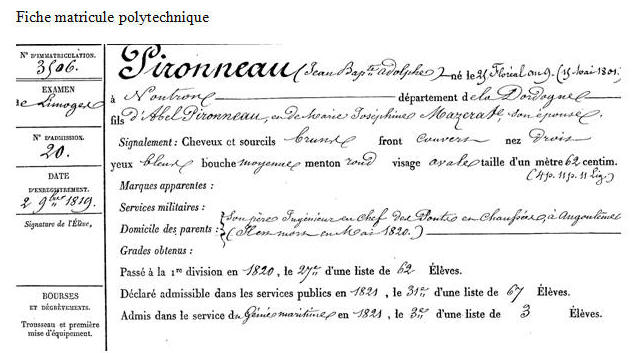 Fiche matricule polytechnique
N° D'IMMATRICULATION.
3506.
EXAMEN
de Limoges
N° D'ADMISSION.
20.
DATE
D'ENREGISTREMENT.
2 9bre 1819.
Signature de l'Élève,
BOURSES
ET DÉGRÈVEMENTS.
Trousseau et première
mise d'équipement.
Pironneau (Jean Bapte adolphe) né le 25 floréal an 9. (15 Mai 1801.
à Nontron département de la Dordogne
fils d'Abel Pironneau, et de Marie Joséphine Mazerat, son épouse.
Signalement : Cheveux et sourcils bruns front couvert nez Droit
yeux bleus bouche moyenne menton rond visage ovale taille d'un mètre 62 centim.
(4p. 11p. 11 lig.)
Marques apparentes :
Services militaires :
Domicile des parents : { Son père Ingénieur en chef des Ponts et Chaussées, à Angoulême
( Il est mort en Mai 1820.)
Grades obtenus :
Passé à la 1re division en 1820, le 27e d'une liste de 62 Élèves.
Déclaré admissible dans les services publics en 1821, le 31e d'une liste de 67 Élèves.
Admis dans le service du Génie maritime en 1821, le 3e d'une liste de 3 Élèves.